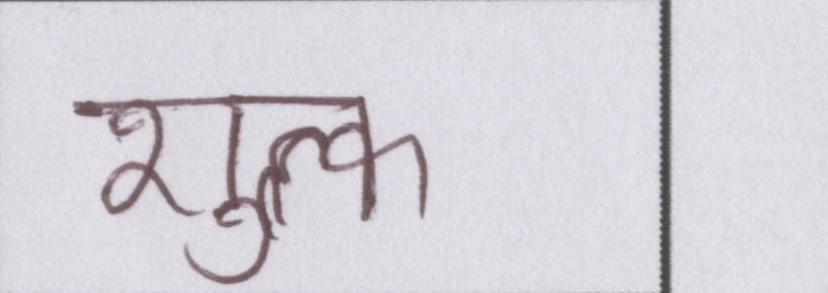 शुल्क